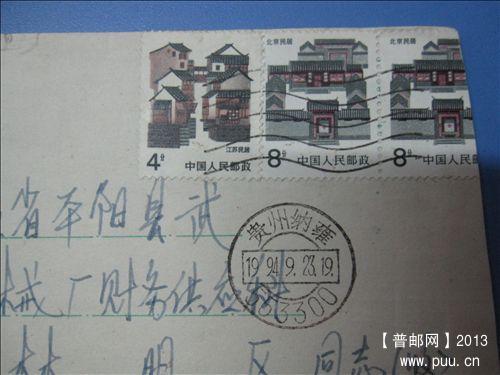 北京民居
北京民居
江苏民居
4分
中国人民邮政
8分
中国人民邮政
8分
中国人民邮政
省平阳县武
贵州纳雍
19 94.9.23.19
553300
械厂财务供应科
林 明 同志
【普邮网】2013
www.puu.cn